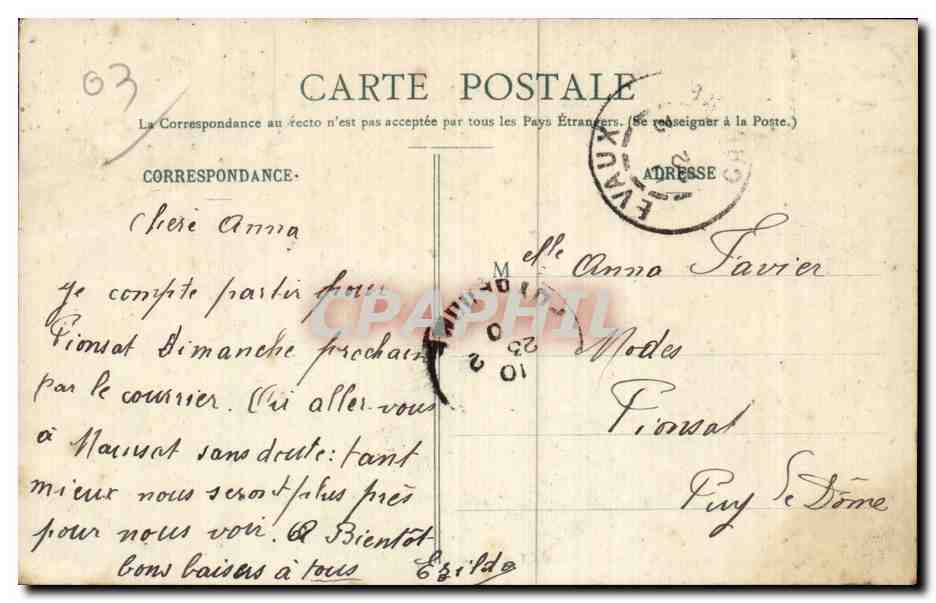 03
CARTE POSTALE
La Correspondance au recto n'est pas acceptée par tous les Pays Étrangers. (Se renseigner à la Poste.)
CORRESPONDANCE
ADRESSE
EVAUX
Chere Anna
Je compte partir pour
Pionsat Dimanche prochain
par le courrier. Oui aller-vous
à Mainsat sans doute: tant
mieux nous seront plus près
pour nous voir. A Bientôt
bons baisers à tous Ezilda
Melle Anna Favier
Modes
Pionsat
Puy De Dôme
10 2
23 0
CPAPHIL